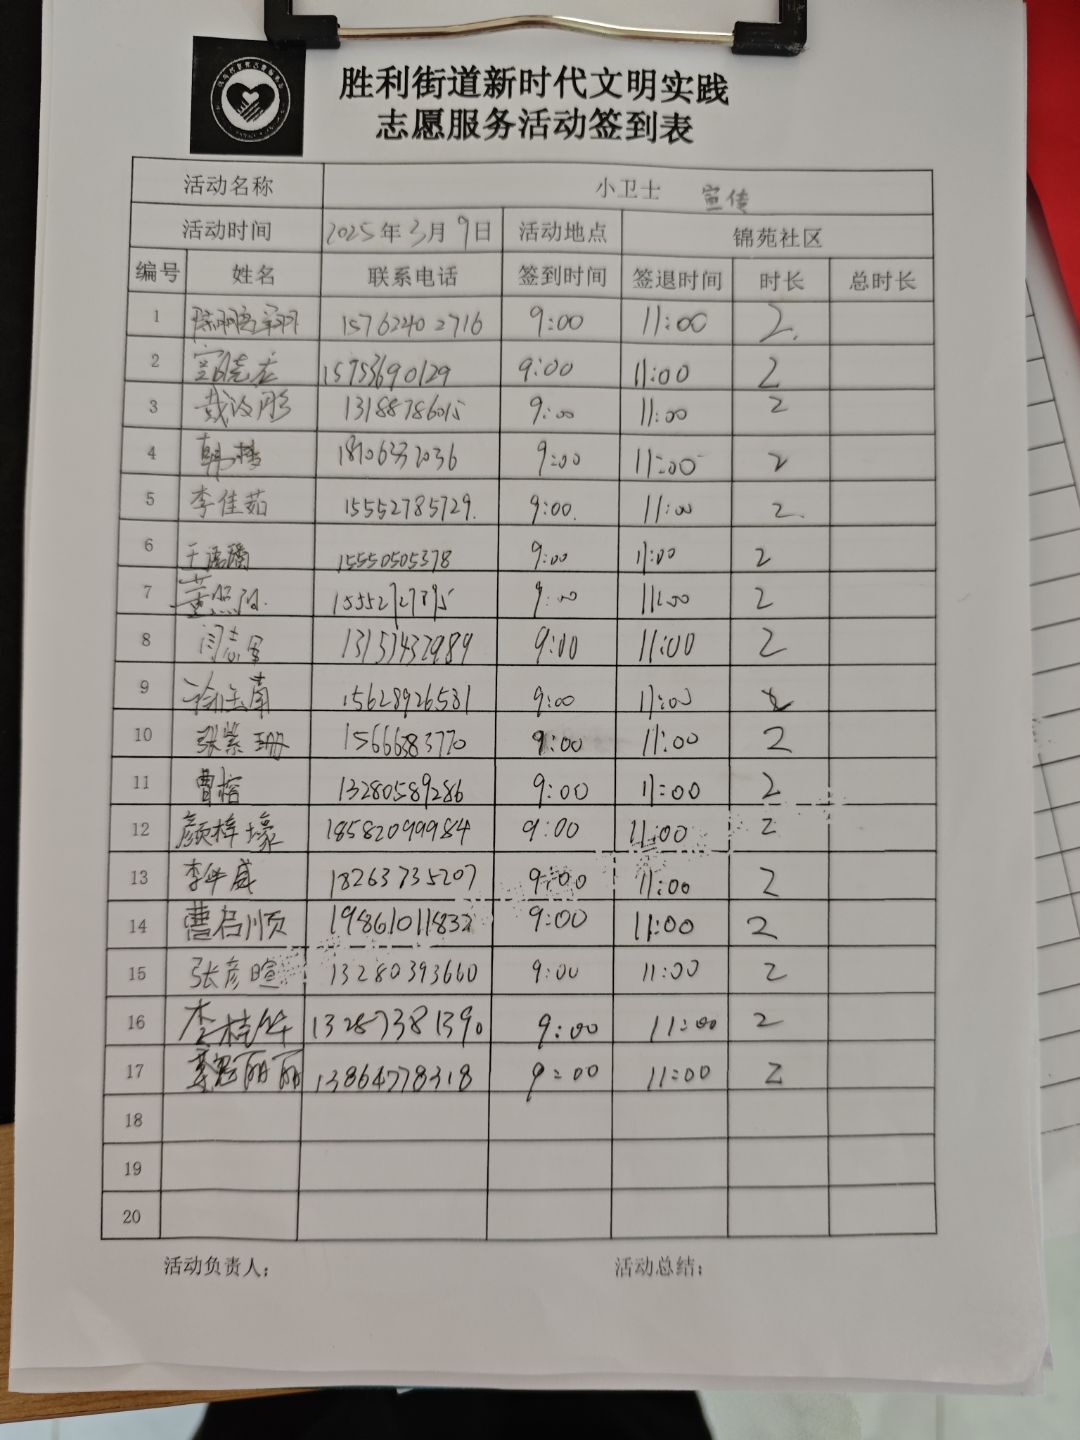 胜利街道新时代文明实践
志愿服务活动签到表
活动名称 小卫士 宣传
活动时间 2025年3月9日 活动地点 锦苑社区
编号 姓名 联系电话 签到时间 签退时间 时长 总时长
1 15762402716 9:00 11:00 2.
2 15753690129 9:00 11:00 2
3 13188786015 9:00 11:00 2
4 韩梅 9:00 11:00 2
5 李佳茹 15552785729. 9:00. 11:00 2.
6 15550505378 9:00 11:00 2
7 9:00 11:00 2
8 闫志军 13157432989 9:00 11:00 2
9 15628926531 9:00 11:00
10 张紫珊 9:00 11:00 2
11 曹榕 13280589286 9:00 11:00 2
12 颜梓壕 18582099984 9:00 11:00 2
13 18263735207 9:00 11:00 2
14 曹启顺 9:00 11:00 2
15 张彦暄 13280393660 9:00 11:00 2
16 李桂华 13287381390 9:00 11:00 2
17 13864778318 9:00 11:00 2
18
19
20
活动负责人： 活动总结：